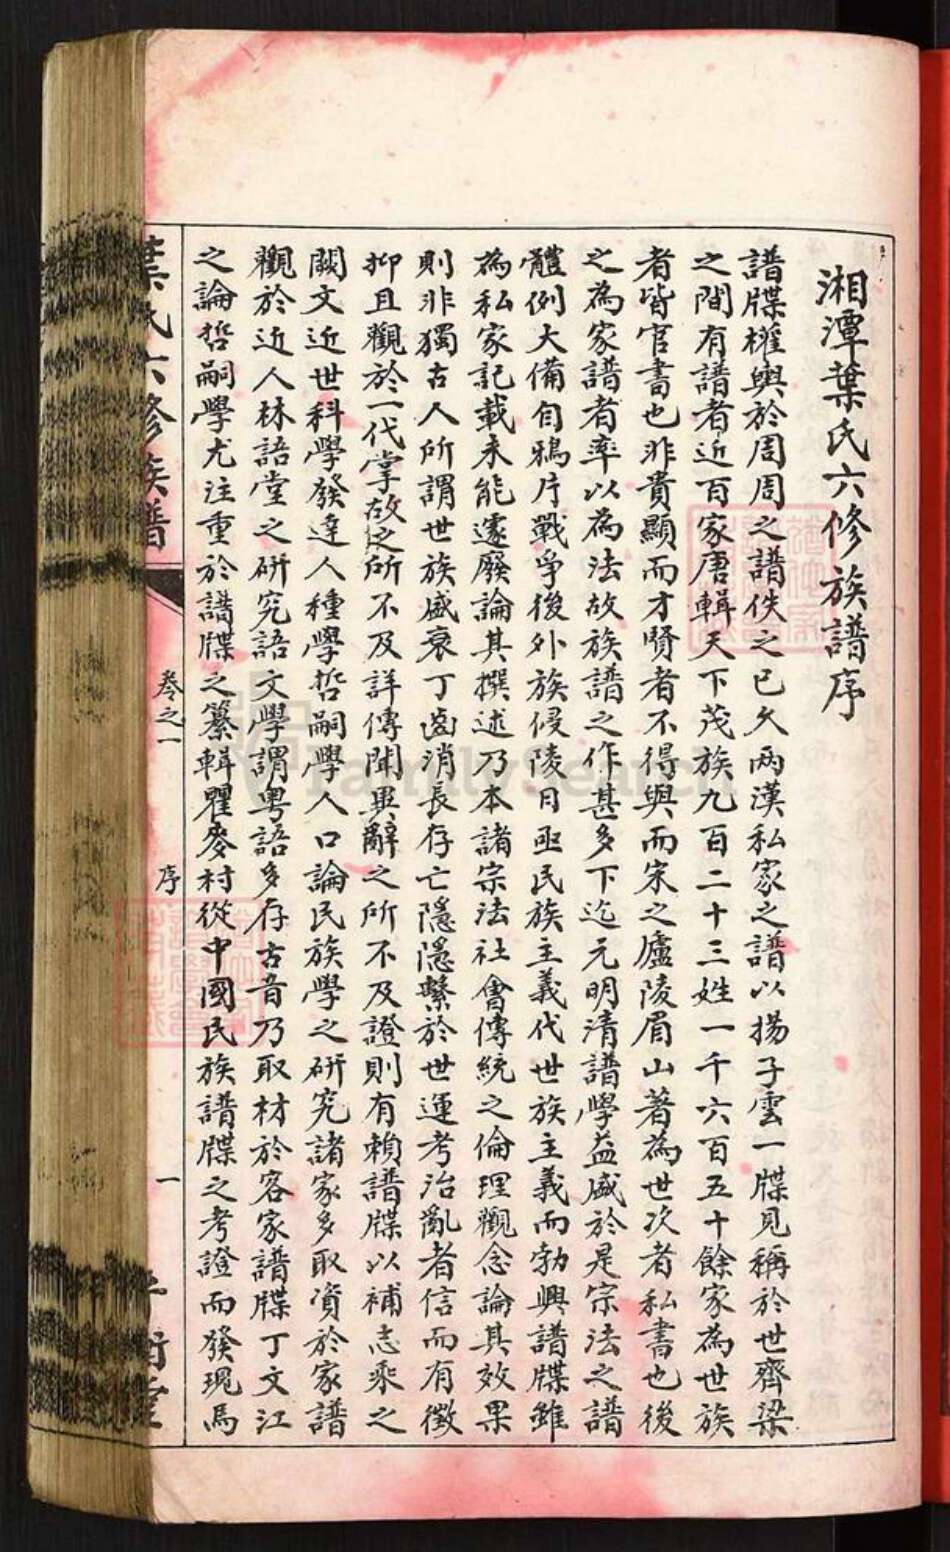 湘潭葉氏六修族譜序
譜牒權輿於周周之譜佚之已久兩漢私家之譜以揚子雲一牒見稱於世齊梁
之間有譜者近百家唐輯天下茂族九百二十三姓一千六百五十餘家為世族
者皆官書也非貴顯而才賢者不得與而宋之廬陵眉山著為世次者私書也後
之為家譜者率以為法故族譜之作甚多下迄元明清譜學益盛於是宗法之譜
體例大備自鴉片戰爭後外族侵陵日亟民族主義代世族主義而勃興譜牒雖
為私家記載未能遽廢論其撰述乃本諸宗法社會傳統之倫理觀念論其效果
則非獨古人所謂世族盛衰丁齒消長存亡隱隱繫於世運考治亂者信而有徵
抑且觀於一代掌故之所不及詳傳聞異辭之所不及證則有賴譜牒以補志乘之
闕文近世科學發達人種學哲嗣學人口論民族學之研究諸家多取資於家譜
觀於近人林語堂之研究語文學謂粵語多存古音乃取材於客家譜牒丁文江
之論哲嗣學尤注重於譜牒之纂輯瞿麥村從中國民族譜牒之考證而發現馬
葉氏六修族譜
卷之一
序
一
FamilySearch